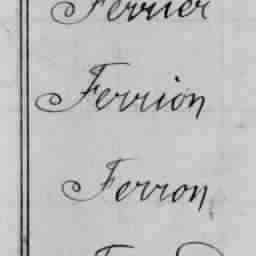 Ferrier
Ferrion
Ferron